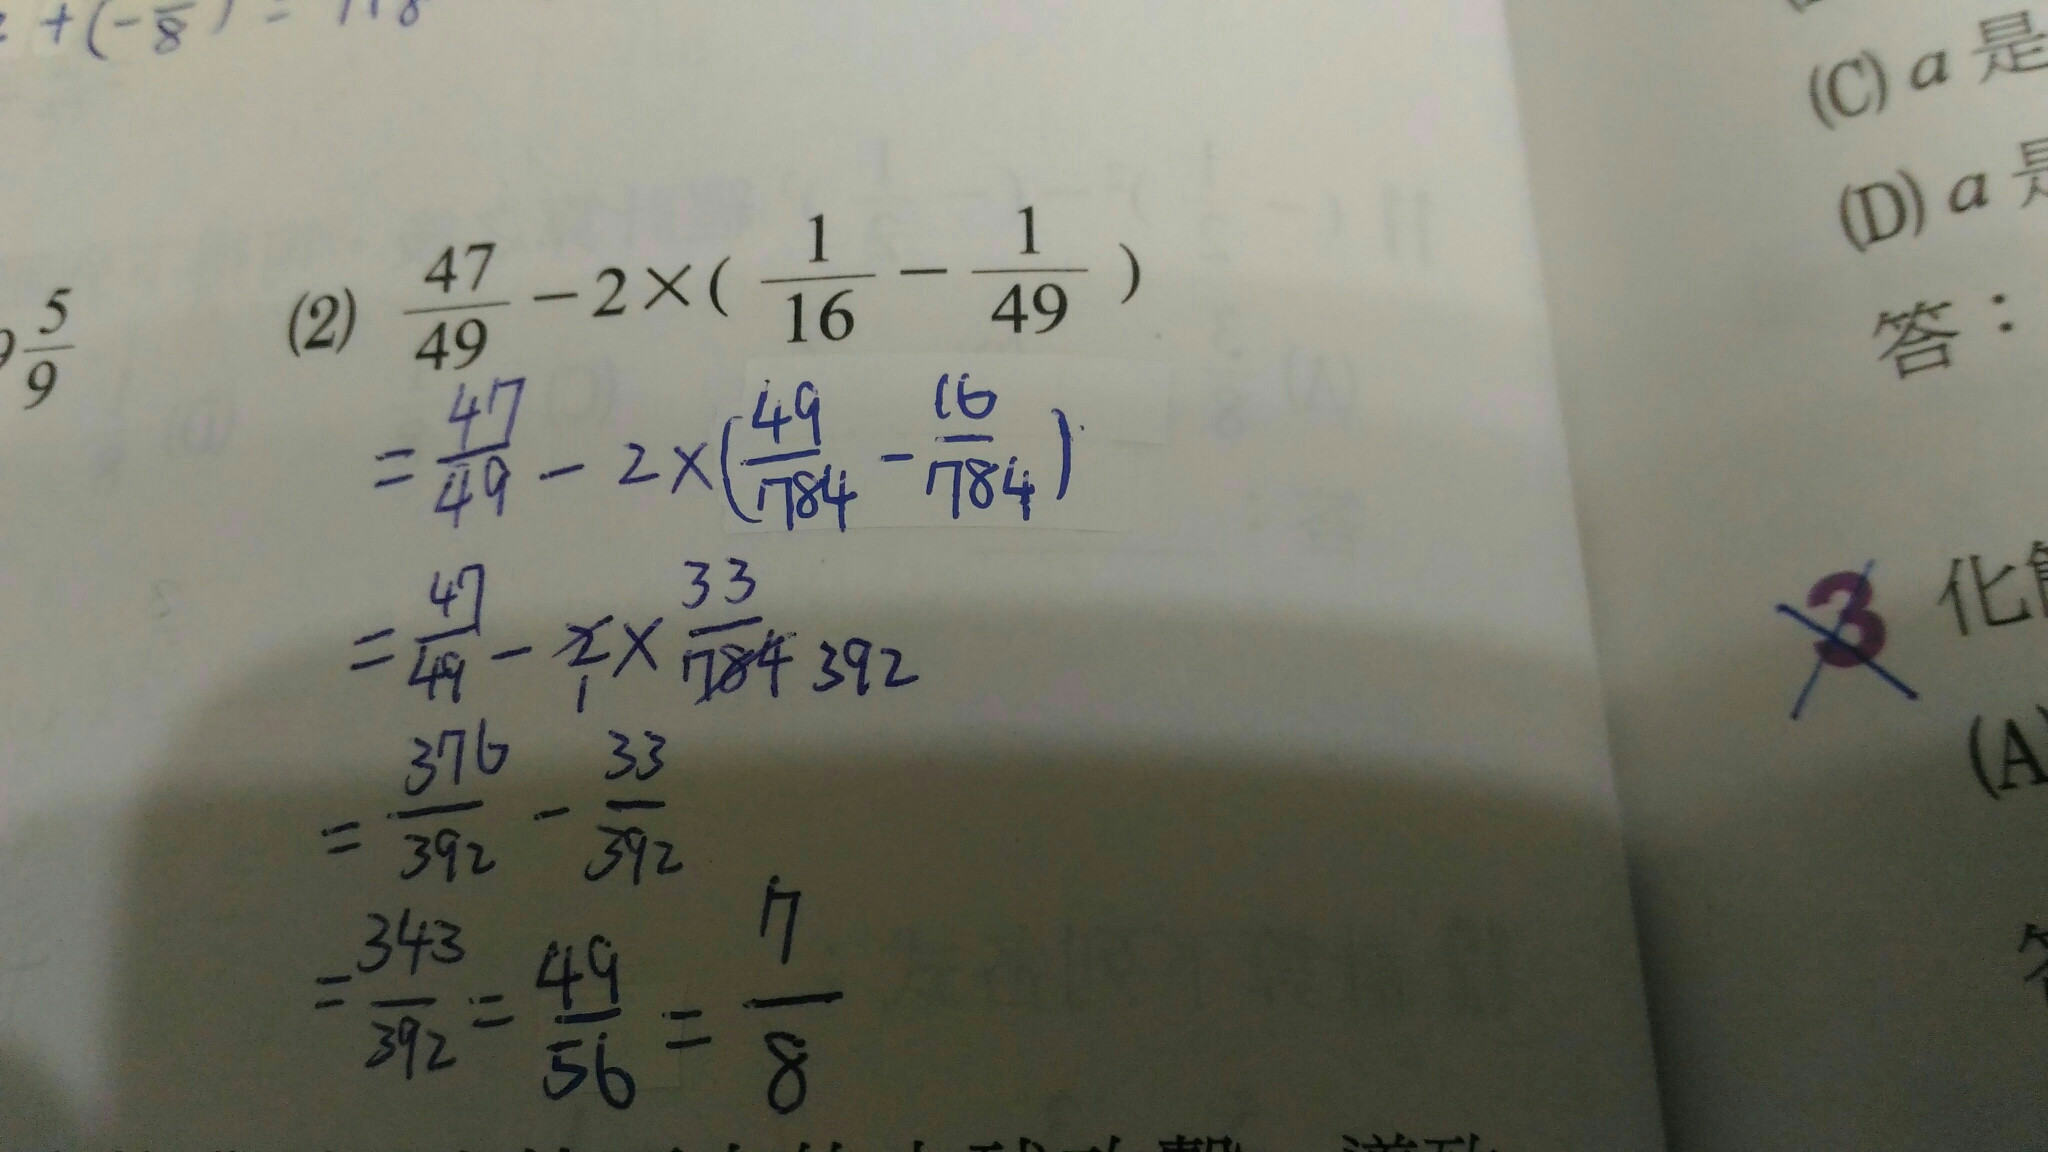 +(-
8
5/9
(2) 47/49 - 2×( 1/16 - 1/49 )
= 47/49 - 2×(49/784 - 16/784)
= 47/49 - 2 1 × 33/784 392
= 376/392 - 33/392
= 343/392 = 49/56 = 7/8
(C) a 是
(D) a 是
答：
3 化
(A)